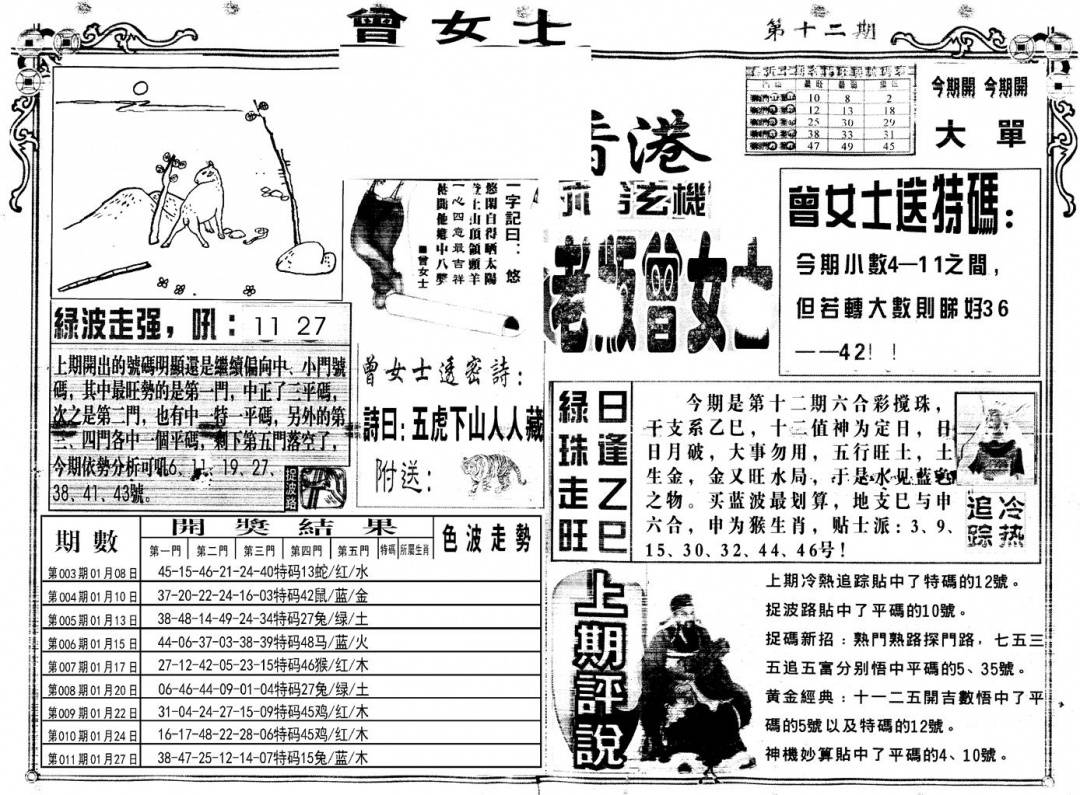 曾女士
第十二期
今期開 今期開
大 單
10 8 2
12 13 18
25 30 29
38 33 31
47 49 45
香港
老版曾女士
曾女士送特碼：
今期小數4—11之間，
但若轉大數則睇好36
——42！！
一字記曰：悠
悠閑自得晒太陽
登上山頂領頭羊
一心四意最吉祥
■曾女士
綠波走强，吼：11 27
上期開出的號碼明顯還是繼續偏向中、小門號
碼，其中最旺勢的是第一門，中正了三平碼，
次之是第二門，也有中一特一平碼，另外的第
三、四門各中一個平碼，剩下第五門落空了，
今期依勢分析可吼6、11、19、27、
38、41、43號。
捉波路
曾女士透密詩：
詩曰：五虎下山人人藏
附送：
綠珠走旺
日逢乙巳
今期是第十二期六合彩搅珠，
干支系乙巳，十二值神为定日，日
日月破，大事勿用，五行旺土，土
生金，金又旺水局，于是水见蓝宫
之物。买蓝波最划算，地支巳与申
六合，申为猴生肖，贴士派：3、9、
15、30、32、44、46号！
冷热
追踪
期數 開獎結果 色波走勢
第一門 第二門 第三門 第四門 第五門 特碼 所屬生肖
第003期01月08日 45-15-46-21-24-40特码13蛇/红/水
第004期01月10日 37-20-22-24-16-03特码42鼠/蓝/金
第005期01月13日 38-48-14-49-24-34特码27兔/绿/土
第006期01月15日 44-06-37-03-38-39特码48马/蓝/火
第007期01月17日 27-12-42-05-23-15特码46猴/红/木
第008期01月20日 06-46-44-09-01-04特码27兔/绿/土
第009期01月22日 31-04-24-27-15-09特码45鸡/红/木
第010期01月24日 16-17-48-22-28-06特码45鸡/红/木
第011期01月27日 38-47-25-12-14-07特码15兔/蓝/木
上期評說
上期冷熱追踪貼中了特碼的12號。
捉波路貼中了平碼的10號。
捉碼新招：熱門熟路探門路，七五三
五追五富分别悟中平碼的5、35號。
黄金經典：十一二五開吉數悟中了平
碼的5號以及特碼的12號。
神機妙算貼中了平碼的4、10號。